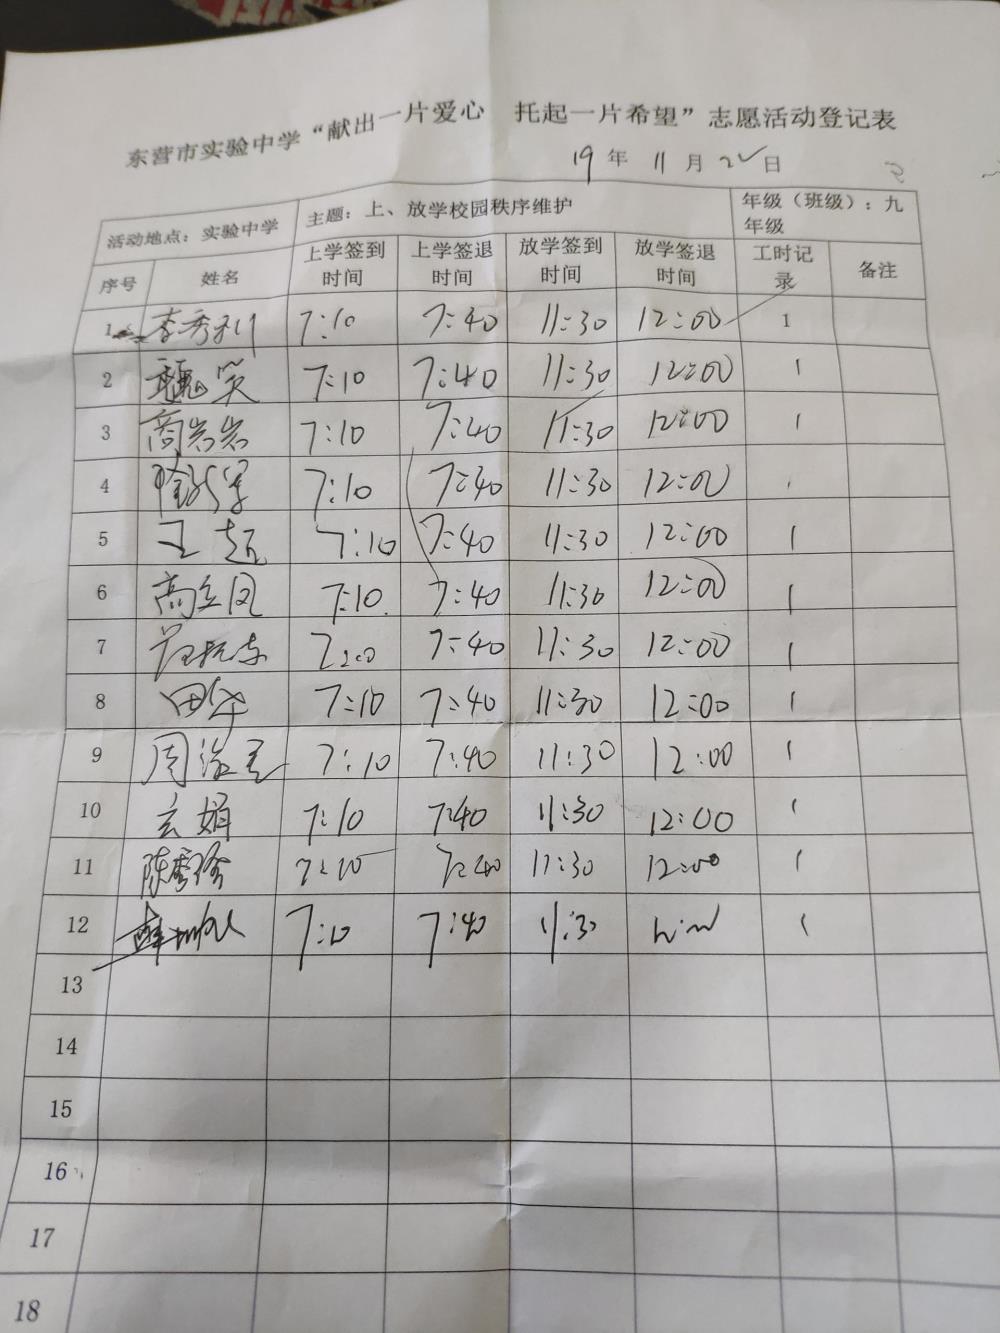 东营市实验中学“献出一片爱心 托起一片希望”志愿活动登记表
19年 11月 日
活动地点：实验中学 主题：上、放学校园秩序维护 年级（班级）：九年级
序号 姓名 上学签到时间 上学签退时间 放学签到时间 放学签退时间 工时记录 备注
1 李秀利 7:10 7:40 11:30 12:00 1
2 魏笑 7:10 7:40 11:30 12:00 1
3 商岩岩 7:10 7:40 11:30 12:00 1
4 7:10 7:40 11:30 12:00
5 王超 7:10 7:40 11:30 12:00 1
6 高立凤 7:10 7:40 11:30 12:00 1
7 7:40 11:30 12:00 1
8 田华 7:10 7:40 11:30 12:00 1
9 周 7:10 7:40 11:30 12:00 1
10 玄娟 7:10 7:40 11:30 12:00 1
11 陈秀 7:10 7:40 11:30 12:00 1
12 7:10 7:40 11:30 1
13
14
15
16
17
18